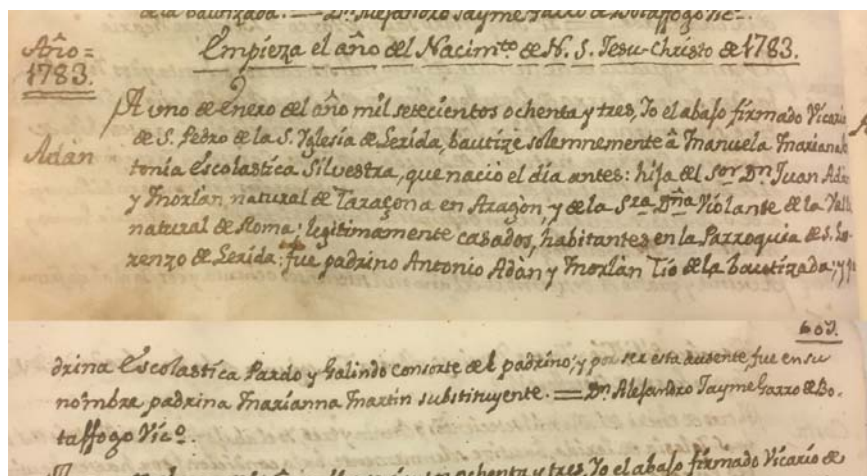 de la bautizada. — Dn. Alejandro Jayme Garro de Botaffogo Vico.
Año =
1783.
Empieza el año del Nacimto. de N. S. Jesu-Christo de 1783.
Adàn
A uno de Enero del año mil setecientos ochenta y tres, Yo el abajo firmado Vicario
de S. Pedro de la S. Iglesia de Lerida, bautizè solemnemente à Manuela Mariana An
tonia Escolastica Silvestra, que naciò el dìa antes: hija del Sor. Dn. Juan Adàn
y Morlàn natural de Taraçona en Aragòn, y de la Sra. Dña. Violante de la Valle
natural de Roma; legitimamente casados, habitantes en la Parroquia de S. Lo-
renzo de Lerida: fue padrino Antonio Adàn y Morlàn Tìo de la bautizada; y
607.
drina Escolastica Pardo y Galindo consorte del padrino; y por ser esta ausente, fue en su
nombre padrina Marianna Martin substituyente. = Dn. Alejandro Jayme Garro de Bo-
taffogo Vico.
ochenta y tres, Yo el abajo firmado Vicario de